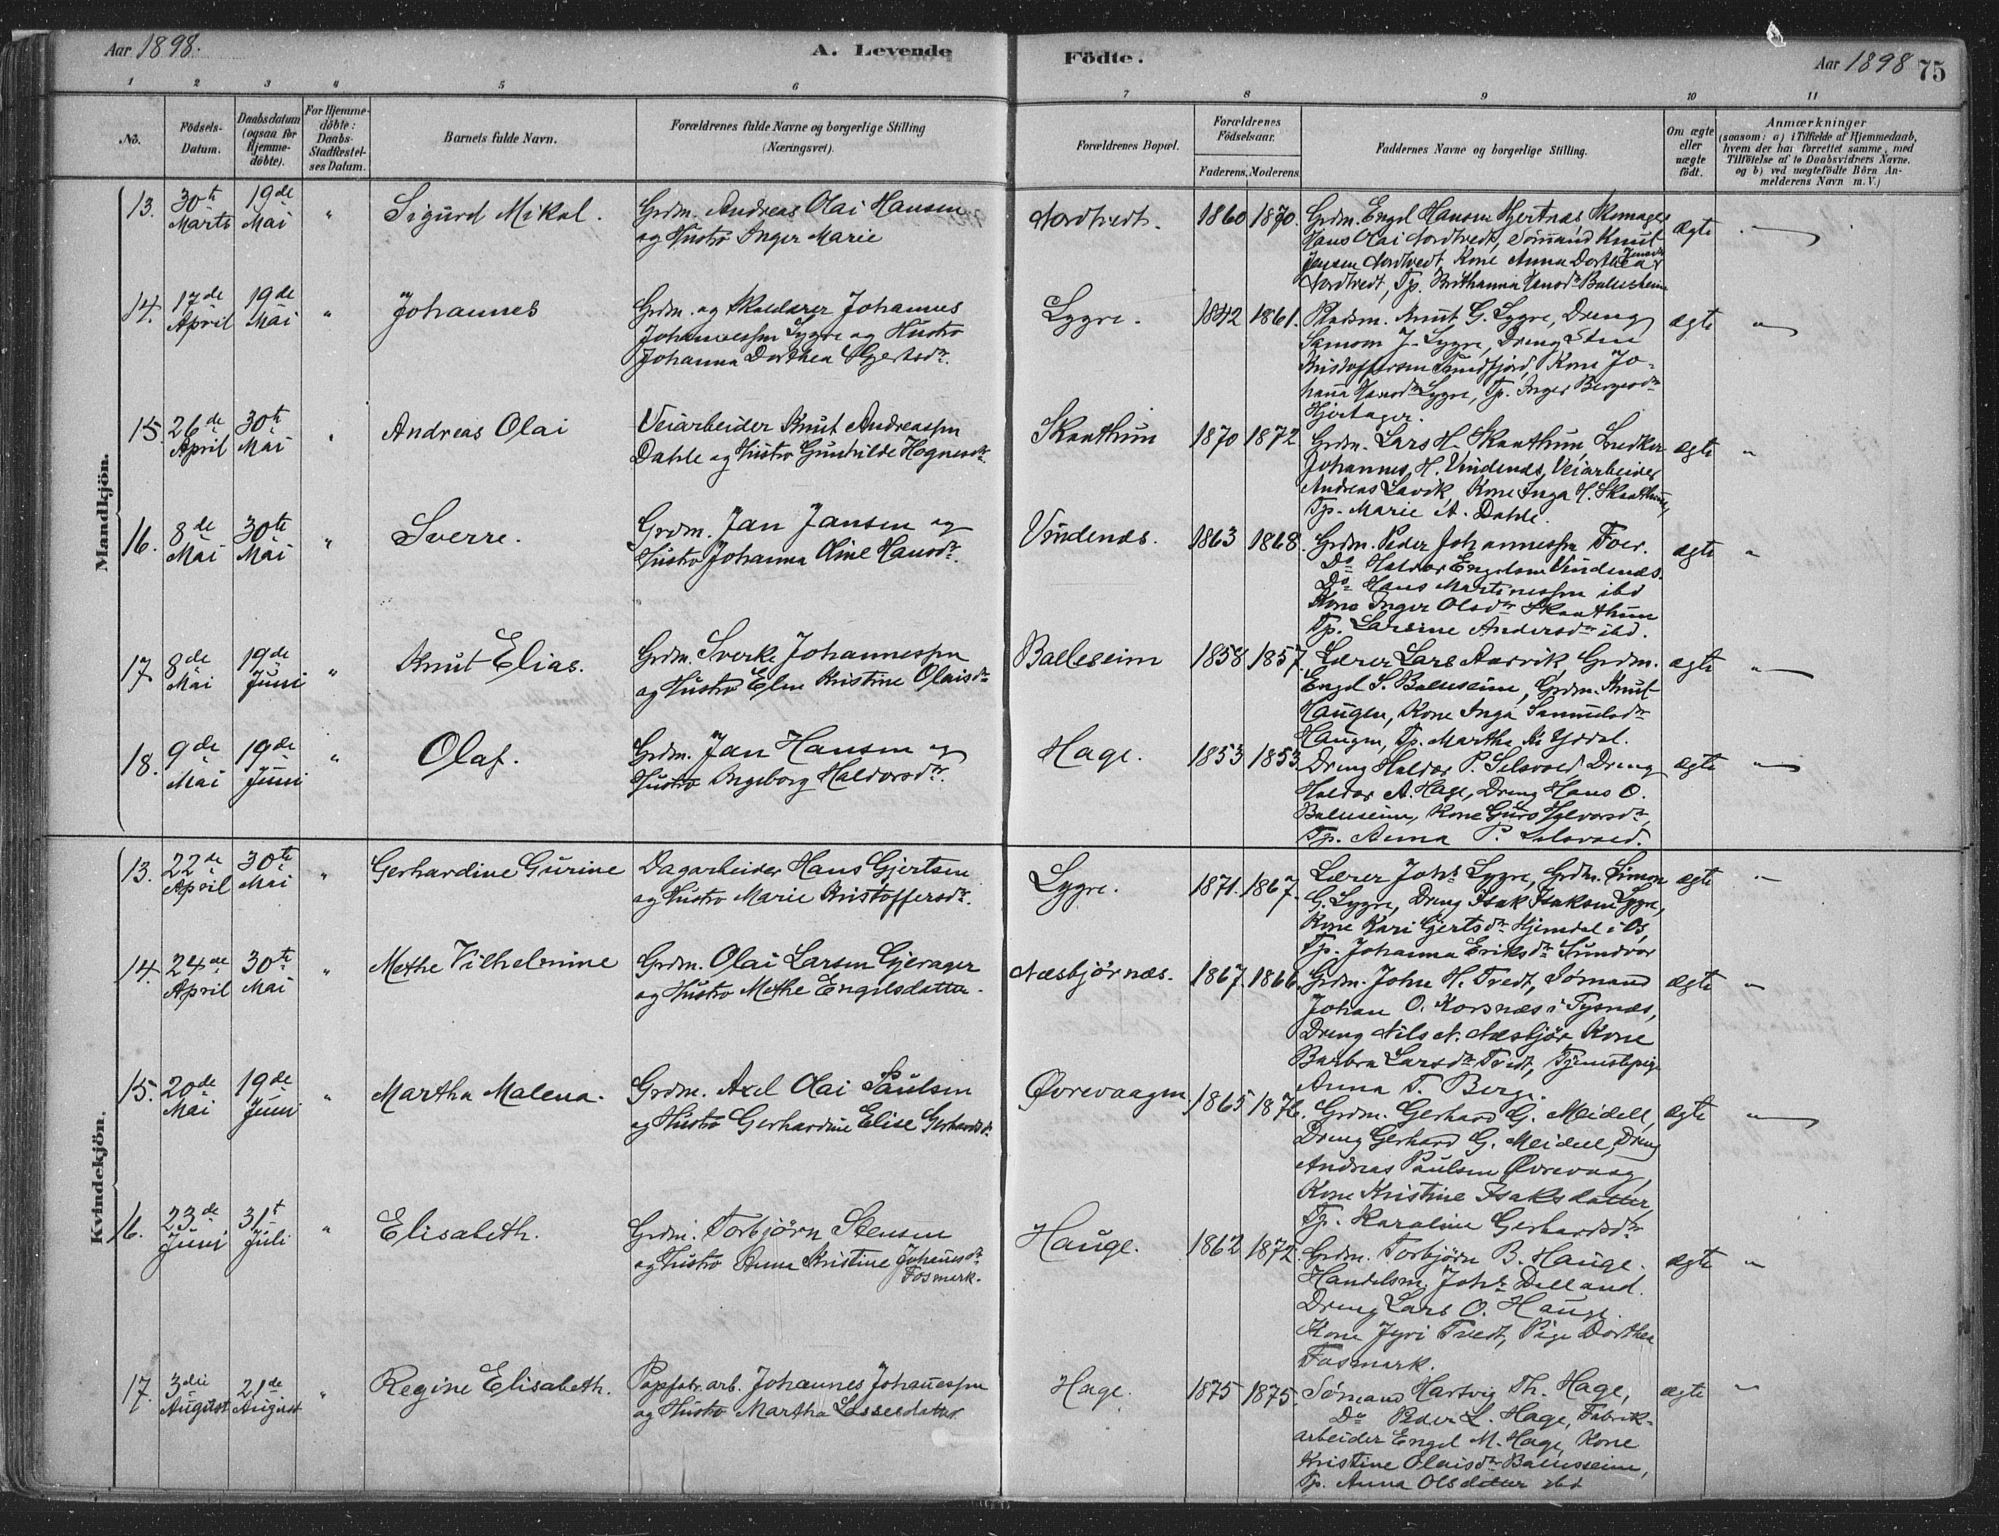 Aar 1898.
A. Levende
Födte.
Aar 1898
75
1
2
3
4
5
6
7
8
9
10
11
No.
Födsels-
Datum.
Daabsdatum
(ogsaa for
Hjemme-
döbte).
For Hjemme-
döbte:
Daabs-
Stadfæstel-
ses Datum.
Barnets fulde Navn.
Forældrenes fulde Navne og borgerlige Stilling
(Næringsvei).
Forældrenes Bopæl.
Forældrenes
Födselsaar.
Faderens.
Moderens.
Faddernes Navne og borgerlige Stilling.
Om ægte
eller
uægte
født.
Anmærkninger
(saasom: a) i Tilfælde af Hjemmedaab,
hvem der har forrettet samme, med
Tilföielse af to Daabsvidners Navne.
og b) ved uægtefödte Börn An-
melderens Navn m. V.)
Mandkjön.
13.
30te
Marts
19de
Mai
"
Sigurd Mikal.
Grdm. Andreas Olai Hansen
og Hustro Inger Marie
Nordtvedt.
1860
1870.
Grdm. Engel Hansen Hjertnæs, Skomager
Hans Olai Nordtvedt, Sømand Knut
Jensen Nordtvedt, Kone Anna Dorthea
Nordtvedt, Tp. Brithanna Hansdr Balleseim
ægte
"
14.
17de
April
19de
Mai
"
Johannes
Grdm. og Skolelærer Johannes
Johannessen Lygre og Hustro
Johanna Dorthea Gjertsdr.
Lygre.
1842
1861.
Pladsm. Knut G. Lygre, Dreng
Samson J. Lygre, Dreng Sten
Kristoffersen Sundfjord, Kone Jo-
hanna Hansdr Lygre, Tp. Inger Bergesdr
Hjertager.
ægte
"
15.
26de
April
30te
Mai
"
Andreas Olai
Veiarbeider Knut Andreassen
Dahle og Hustro Gunhilde Hognesdr.
Skaathun
1870
1872.
Grdm. Lars H. Skaathun, Snedker
Johannes H. Vindenæs, Veiarbeider
Andreas Lavik, Kone Inga H. Skaathun,
Tp. Marie A. Dahle.
ægte
"
16.
8de
Mai
30te
Mai
"
Sverre.
Grdm. Jan Jansen og
Hustro Johanna Oline Hansdr.
Vindenæs.
1863
1868.
Grdm. Peder Johannessen Toer.
Do Haldor Engelsen Vindenæs.
Do Hans Martinessen ibd
Kone Inger Olsdr Skaathun
Tp. Larsine Andersdr ibd.
ægte
"
17.
8de
Mai
19de
Juni
"
Knut Elias.
Grdm. Sverke Johannessen
og Hustro Elen Kristine Olaisdr
Balleseim
1858
1857.
Lærer Lars Aarvik, Grdm.
Engel S. Balleseim, Grdm. Knut
Haugen, Kone Inga Samuelsdr
Haugen, Tp. Martha K. Yddal.
ægte
"
18.
9de
Mai
19de
Juni
"
Olaf.
Grdm. Jan Hansen og
Hustro Ingeborg Haldorsdr.
Hage.
1853
1853
Dreng Haldor P. Selsvold, Dreng
Haldor A. Hage, Dreng Hans O.
Balleseim, Kone Guro Halvorsdr,
Tp. Anna P. Selsvold.
ægte
"
Kvindekjön.
13.
22de
April
30te
Mai
"
Gerhardine Gurine
Dagarbeider Hans Gjertsen
og Hustro Marie Kristoffersdr.
Lygre.
1871.
1867.
Lærer Johs Lygre, Grdm. Simon
G. Lygre, Dreng Isak Isaksen Lygre,
Kone Kari Gjertsdr Hjemdal i Os,
Tp. Johanna Eriksdr Sundvor
ægte
"
14.
24de
April
30te
Mai
"
Methe Vilhelmine
Grdm. Olai Larsen Gjerager
og Hustro Methe Engelsdatter.
Næsbjørnæs.
1867.
1866.
Grdm. John H. Tvedt, Sømand
Johan O. Korsnæs i Tysnæs,
Dreng Nils N. Næsbjør Kone
Barbra Larsdr Tvedt, Tjenestepige
Anna T. Berge.
ægte
"
15.
20de
Mai
19de
Juni
"
Martha Malena.
Grdm. Axel Olai Paulsen
og Hustro Gerhardine Elise Gerhardsdr.
Øvrevaagen
1865
1876.
Grdm. Gerhard G. Meidell,
Dreng Gerhard G. Meidell, Dreng
Andreas Paulsen Øvrevaag,
Kone Kristine Isaksdatter,
Tp. Karoline Gerhardsdr
ægte
"
16.
23de
Juni
31t
Juli
"
Elisabeth.
Grdm. Torbjörn Stensen
og Hustro Anna Kristine Johannesdr
Fosmark.
Hauge.
1862
1872.
Grdm. Torbjörn B. Hauge.
Handelsm. Johs Dalland.
Dreng Lars O. Hauge
Kone Jyri Tvedt, Pige Dorthea
Fosmark.
ægte
"
17.
3die
August
21de
August
"
Regine Elisabeth.
Papfabr.arb. Johannes Johannessen
og Hustro Martha Lassesdatter
Hage.
1875
1875.
Sømand Hartvig Th. Hage,
Do Peder L. Hage, Fabrik-
arbeider Engel M. Hage, Kone
Kristine Olaisdr Balleseim,
Tp. Anna Olsdatter ibd
ægte
"